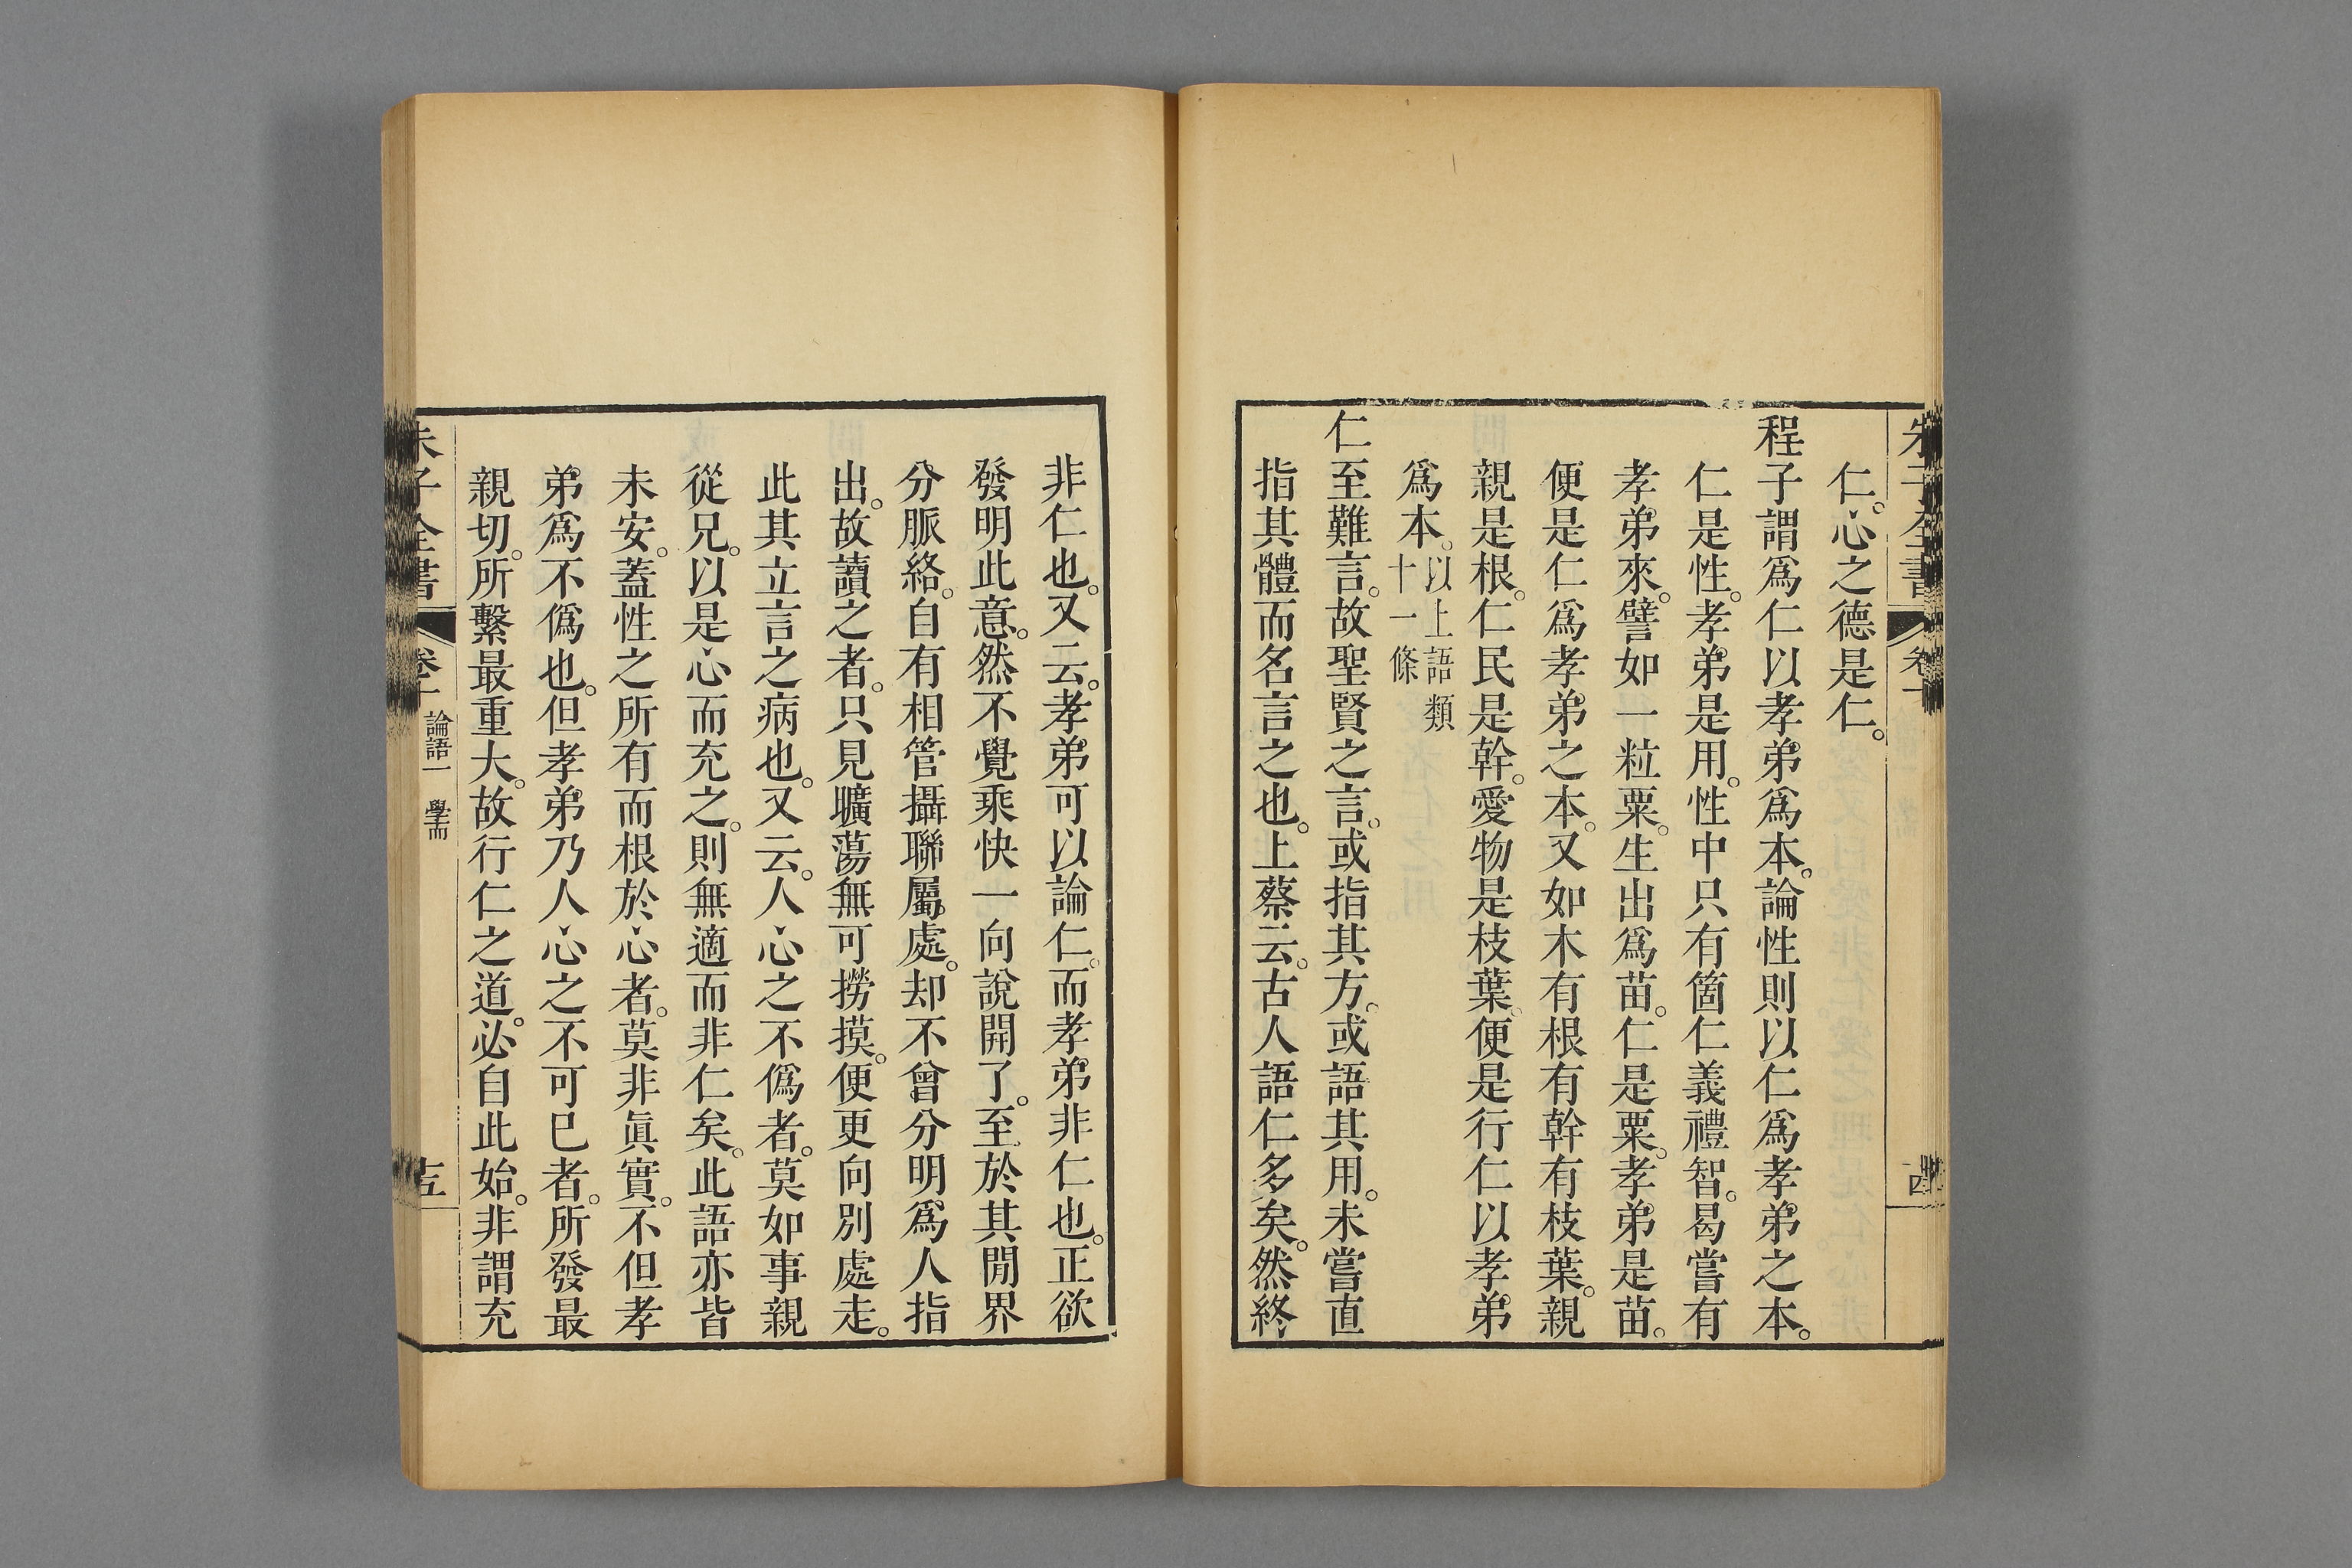 朱子全書 卷十 四
仁。心之德是仁。
程子謂爲仁以孝弟爲本。論性則以仁爲孝弟之本。
仁是性。孝弟是用。性中只有箇仁義禮智。曷嘗有
孝弟來。譬如一粒粟。生出爲苗。仁是粟。孝弟是苗。
便是仁爲孝弟之本。又如木有根有幹有枝葉。親
親是根。仁民是幹。愛物是枝葉。便是行仁以孝弟
爲本。以上語類
十一條
仁至難言。故聖賢之言。或指其方。或語其用。未嘗直
指其體而名言之也。上蔡云。古人語仁多矣。然終
非仁也。又云。孝弟可以論仁。而孝弟非仁也。正欲
發明此意。然不覺乘快一向說開了。至於其閒界
分脈絡。自有相管攝聯屬處。却不曾分明爲人指
出。故讀之者。只見曠蕩無可撈摸。便更向別處走。
此其立言之病也。又云。人心之不僞者。莫如事親
從兄。以是心而充之。則無適而非仁矣。此語亦皆
未安。蓋性之所有而根於心者。莫非眞實。不但孝
弟爲不僞也。但孝弟乃人心之不可已者。所發最
親切。所繫最重大。故行仁之道。必自此始。非謂充
朱子全書 卷十 論語一 學而 十五